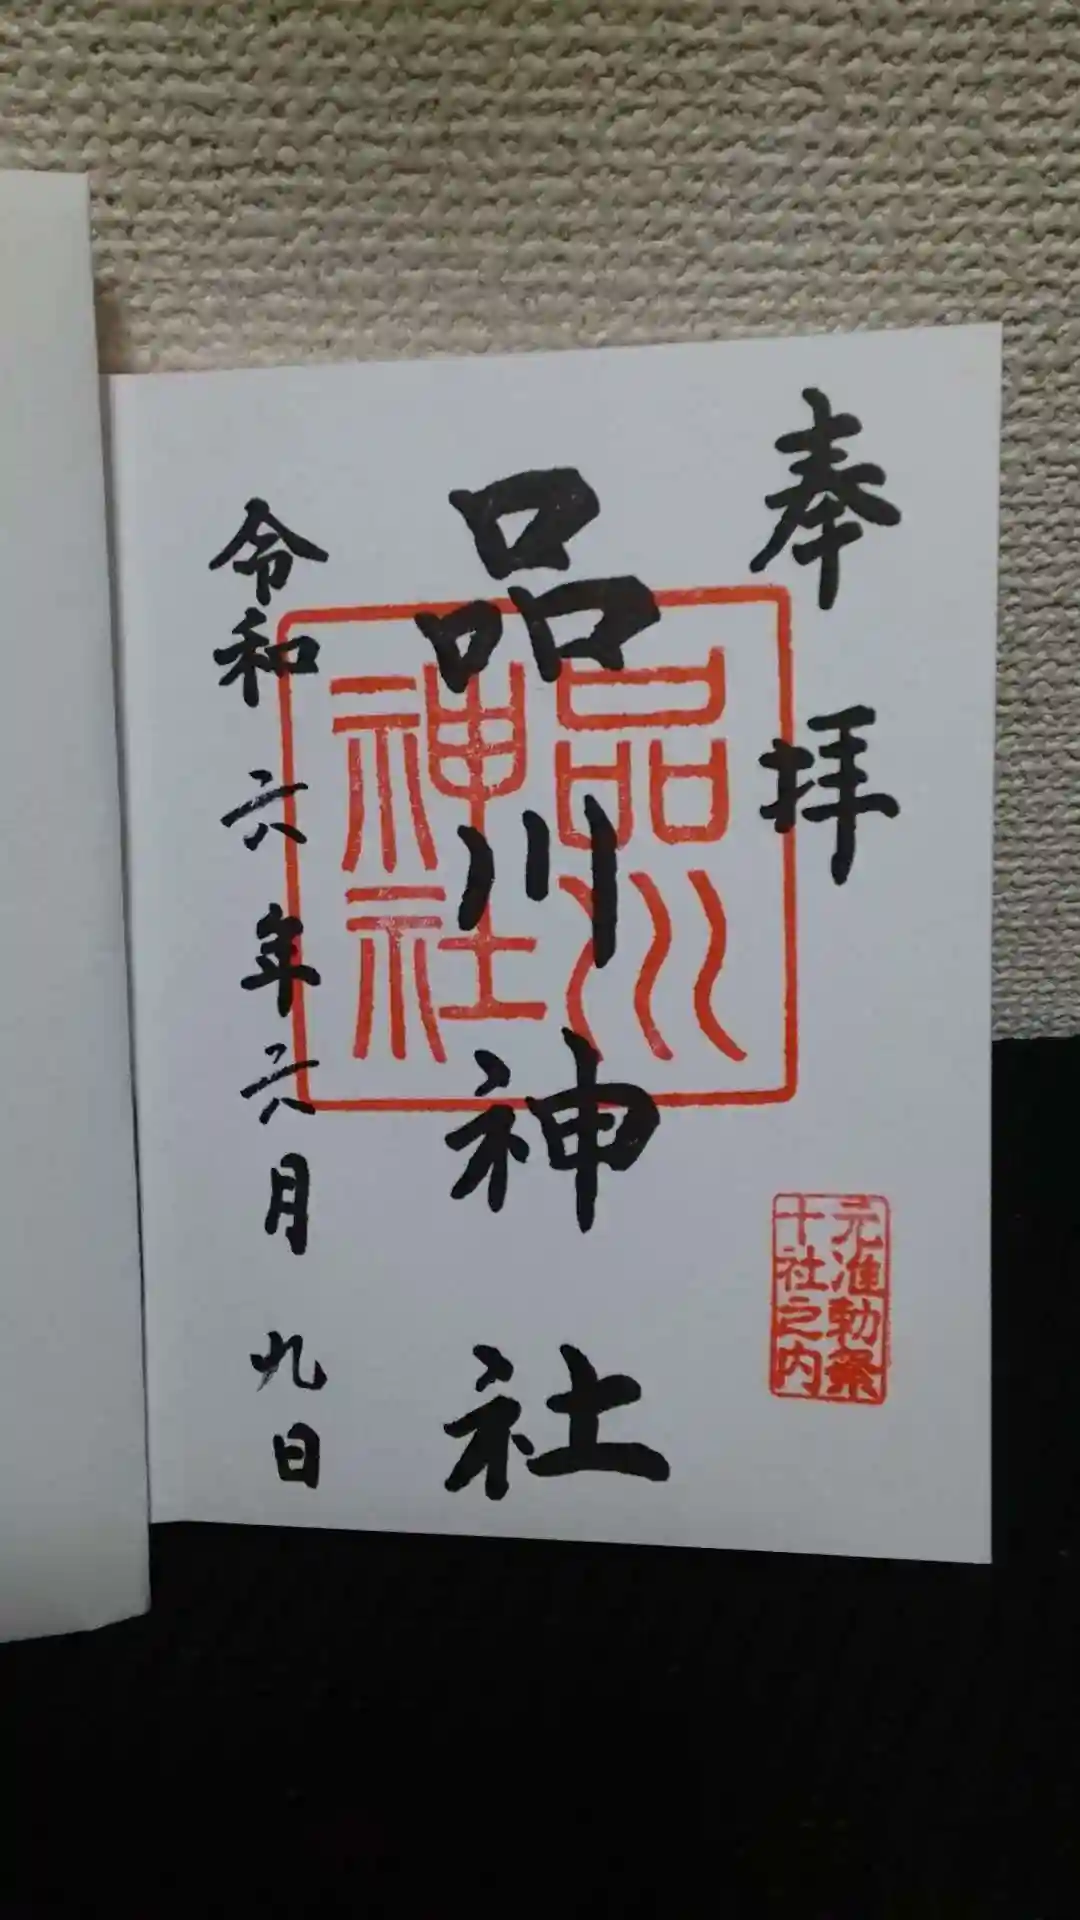 奉拝
元准勅祭
十社之内
品川神社
品川
神社
令和六年六月九日